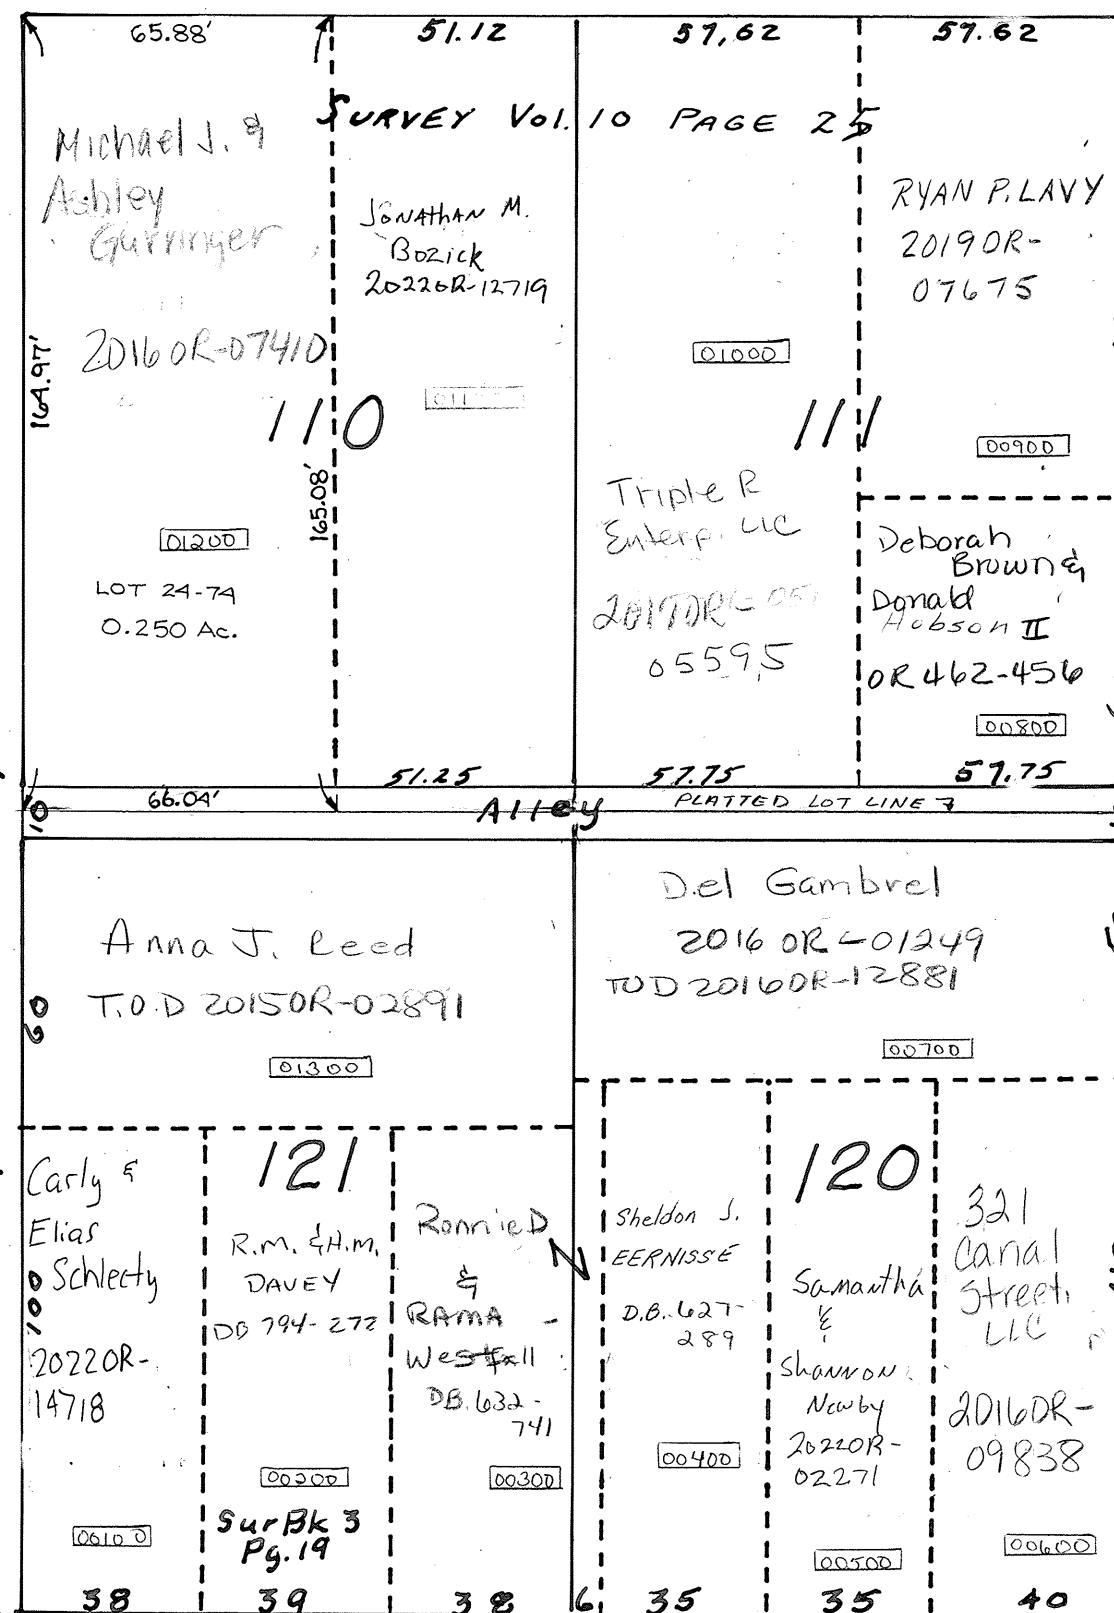 65.88'
51.12
57,62
57.62
SURVEY Vol. 10 PAGE 25
Michael J. &
Ashley
20160R-07410
164.97'
165.08'
110
01200
LOT 24-74
0.250 Ac.
66.04'
JONATHAN M.
Bozick
20220R-12719
51.25
01000
111
Triple R
Enterp. LLC
05595
57.75
RYAN P. LAVY
20190R-
07675
00900
Deborah
Brown &
Donald
Hobson II
OR 462-456
00800
57.75
10
Alley
PLATTED LOT LINE
Anna J. Reed
T.O.D 20150R-02891
60
01300
Del Gambrel
2016 OR-01249
TOD 20160R-12881
00700
121
Carly &
Elias
Schlecty
100
20220R-
14718
00100
38
R.M. & H.M.
DAVEY
DB 794-272
00200
Sur Bk 3
Pg. 19
39
Ronnie D
&
RAMA
Westfall
DB. 632-
741
00300
38
N
6
120
Sheldon J.
EERNISSE
D.B. 627-
289
00400
35
Samantha
&
Shannon
Newby
20220R-
02271
00500
35
321
Canal
Street,
LLC
20160R-
09838
00600
40